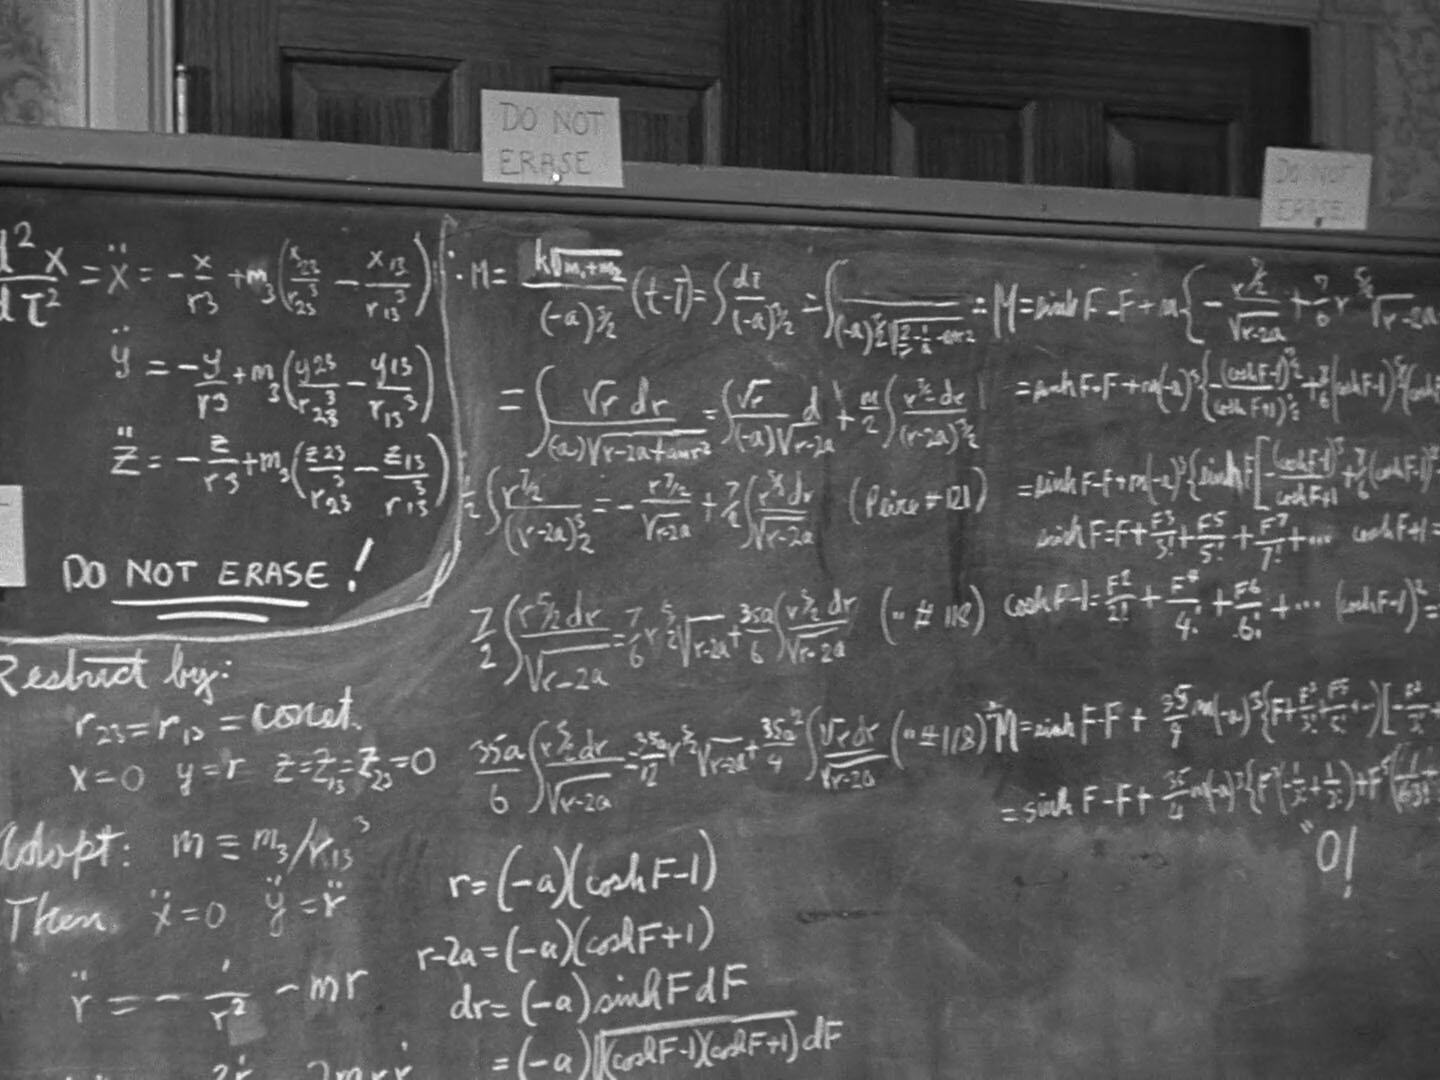 DO NOT
ERASE
DO NOT
ERASE
d²x/dτ² = ẍ = -x/r3 + m₃(x₂₃/r₂₃³ - x₁₃/r₁₃³)
ÿ = -y/r3 + m₃(y₂₃/r₂₃³ - y₁₃/r₁₃³)
z̈ = -z/r3 + m₃(z₂₃/r₂₃³ - z₁₃/r₁₃³)
DO NOT ERASE!
Restrict by:
r₂₃ = r₁₃ = const.
x=0 y=r z=z₁₃=z₂₃=0
Adopt: m ≡ m₃/r₁₃³
Then ẍ=0 ÿ=r̈
r̈ = -1/r² - mr
∴ M = k√(m₁+m₂)/(-a)^3/2 (t-T) = ∫dτ/(-a)^3/2
= ∫√r dr/((-a)√(r-2a+amr³)) = ∫√r d/((-a)√(r-2a)) + m/2 ∫r^7/2 dr/(r-2a)^3/2
∫r^7/2/(r-2a)^3/2 = -r^7/2/√(r-2a) + 7/2 ∫r^5/2 dr/√(r-2a) (Peirce #121)
7/2 ∫r^5/2 dr/√(r-2a) = 7/6 r^5/2 √(r-2a) + 35a/6 ∫r^3/2 dr/√(r-2a) (" # 118)
35a/6 ∫r^3/2 dr/√(r-2a) = 35a/12 r^3/2 √(r-2a) + 35a²/4 ∫√r dr/√(r-2a) (" #118)
r = (-a)(cosh F-1)
r-2a = (-a)(cosh F+1)
dr = (-a) sinh F dF
= (-a)√((cosh F-1)(cosh F+1)) dF
M = sinh F - F + m{-r^7/2/√(r-2a) + 7/6 r^5/2 √(r-2a)
= sinh F - F + m(-a)³{-(cosh F-1)^7/2/(cosh F+1)^1/2 + 7/6(cosh F-1)^5/2
= sinh F - F + m(-a)³{sinh F[-(cosh F-1)³/cosh F+1 + 7/6(cosh F-1)²
sinh F = F + F³/3! + F⁵/5! + F⁷/7! + ... cosh F+1 =
cosh F-1 = F²/2! + F⁴/4! + F⁶/6! + ... (cosh F-1)² =
M = sinh F-F + 35/4 m(-a)³{F + F³/3! + F⁵/5! + ...}[-F²/2!
= sinh F-F + 35/4 m(-a)³{F³(-1/2! + 1/3!) + F⁵(
"0!